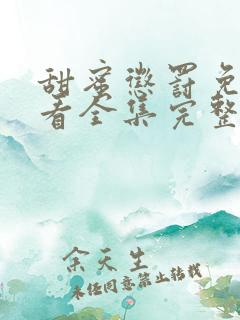 甜蜜惩罚免
看全集完整
余天生
未经同意禁止转载